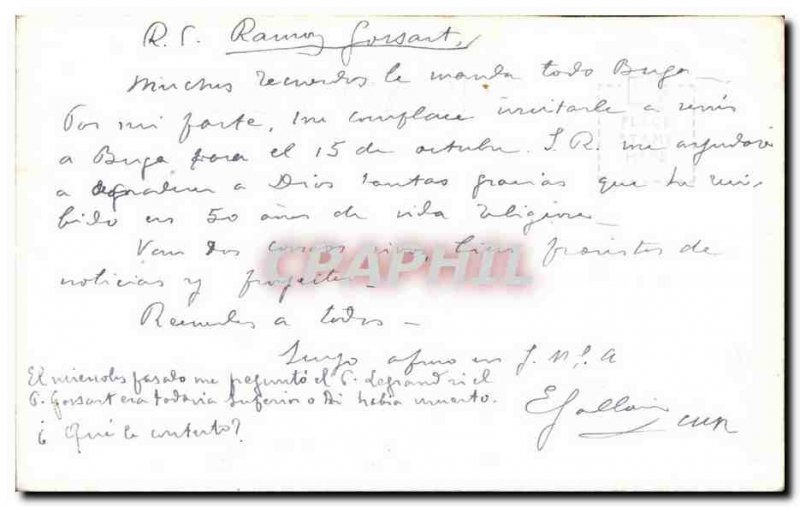 R. P. Ramon Gossart,
Muchos recuerdos le manda todo Buga—
Por mi parte, me complace invitarle a venir
a Buga para el 15 de octubre. S. R. me ayudará
a agradecer a Dios tantas gracias que he reci-
bido en 50 años de vida religiosa—
Van dos correos vivos, bien provistos de
noticias y proyectos—
Recuerdos a todos—
Suyo afmo en J. M. J. A
El miércoles pasado me preguntó el P. Legrand si el
P. Gossart era todavía Superior o si había muerto.
¿ Qué le contesto?
E Gallais cmr
PLACE
STAMP
HERE
CPAPHIL